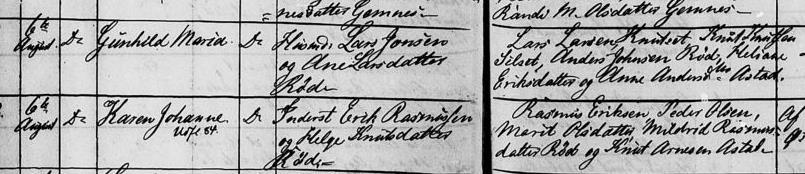 nesdatter Gemnes
Randi M. Olsdatter Gemnes
6te August Do Gunhild Maria Do Husmd. Lars Jonsen
og Ane Larsdatter
Röde
Lars Larsen Knutset, Knut Knutsen
Silset, Anders Johnsen Röd, Heliane
Eriksdatter og Anne Andersdtr Astad.
6te August Do Karen Johanne Do Inderst Erik Rasmussen
og Helge Knutsdatter
Röde
Rasmus Eriksen, Peder Olsen,
Marit Olsdatter Mildrid Rasmus-
datter Röd og Knut Arnesen Astad
Af